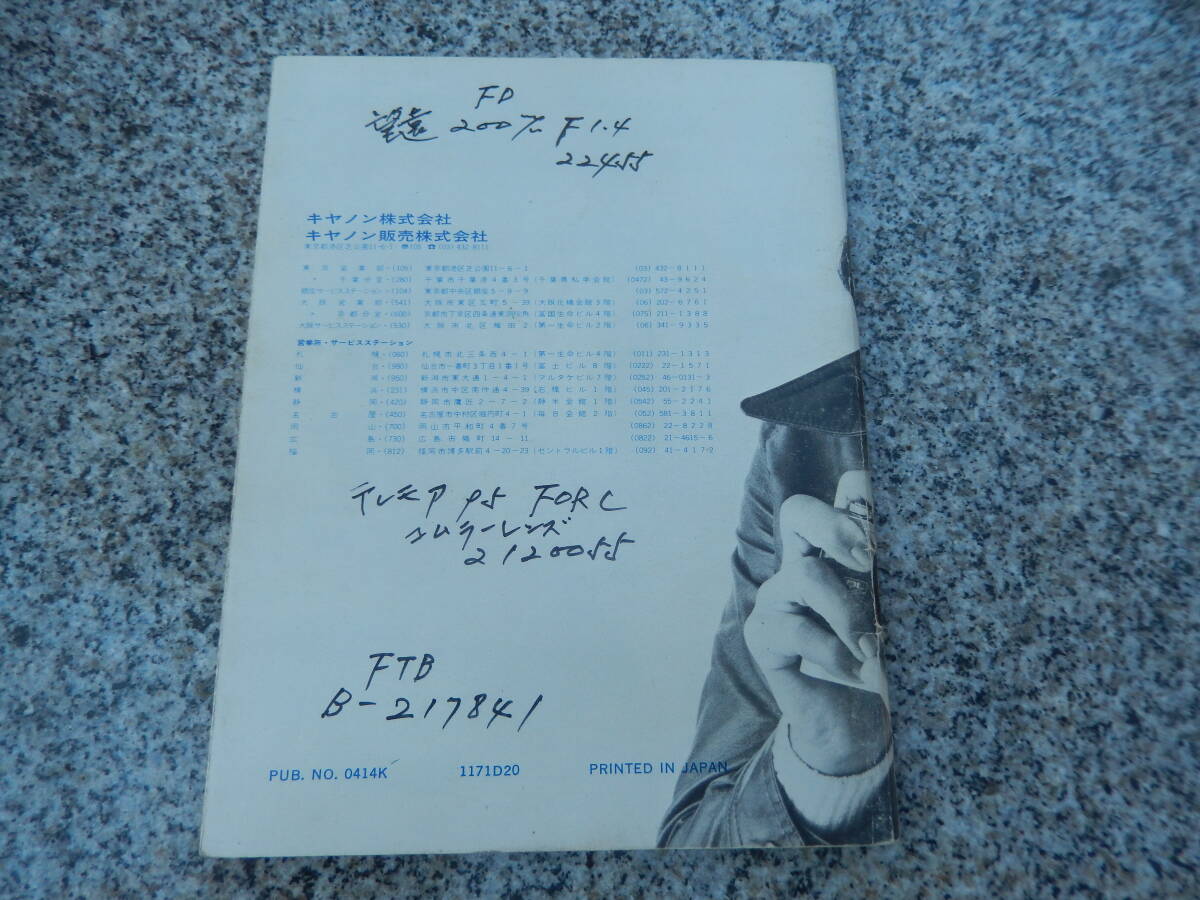 FD
望遠 200㎜ F1.4
22455
キヤノン株式会社
キヤノン販売株式会社
東京都港区芝公園11-6-1 〒105 ☎ (03) 432-8111
東京営業部・(105) 東京都港区芝公園11-6-1 (03) 432-8111
〃 千葉分室・(280) 千葉市千葉港4番3号(千葉県私学会館) (0472) 43-9624
銀座サービスステーション・(104) 東京都中央区銀座5-9-9 (03) 572-4251
大阪営業部・(541) (大阪化繊会館3階) (06) 202-6761
〃 京都分室・(600) (富国生命ビル4階) (075) 211-1388
大阪サービスステーション・(530) 大阪市北区梅田2(第一生命ビル2階) (06) 341-9335
営業所・サービスステーション
札幌・(060) 札幌市北三条西4-1(第一生命ビル4階) (011) 231-1313
仙台・(980) 仙台市一番町3丁目1番1号(富士ビル8階) (0222) 22-1571
新潟・(950) 新潟市東大通1-4-1(マルタケビル7階) (0252) 46-0131-3
横浜・(231) 横浜市中区南仲通4-39(石橋ビル1階) (045) 201-2176
静岡・(420) 静岡市鷹匠2-7-2(静米会館1階) (0542) 55-2241
名古屋・(450) 名古屋市中村区堀内町4-1(毎日会館2階) (052) 581-3811
岡山・(700) 岡山市平和町4番7号 (0862) 22-8228
広島・(730) 広島市幟町14-11 (0822) 21-4615-6
福岡・(812) 福岡市博多駅前4-20-23(セントラルビル1階) (092) 41-4172
テレモア 95 FOR C
コムラーレンズ
2120055
FTB
B-217841
PUB. NO. 0414K 1171D20 PRINTED IN JAPAN